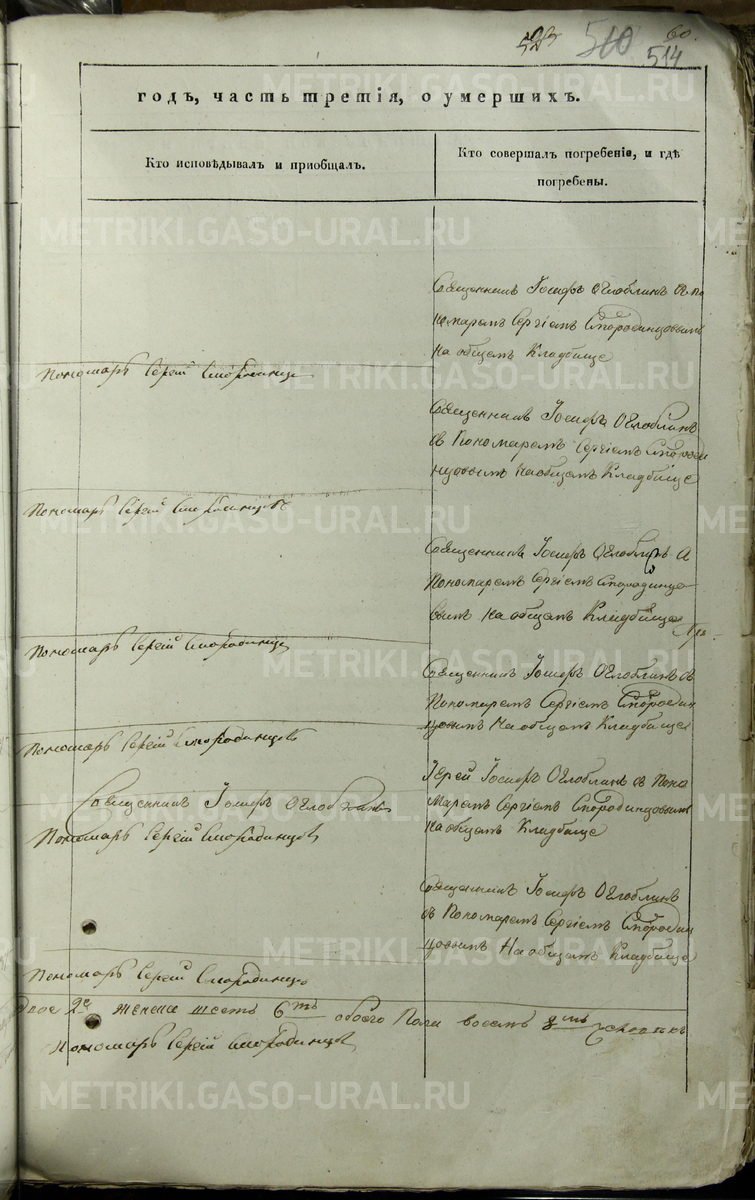 523 510 60.
514
годъ, часть третія, о умершихъ.
Кто исповѣдывалъ и пріобщалъ.
Кто совершалъ погребеніе, и гдѣ
погребены.
Священникъ Іосифъ Оглоблинъ съ по
номаремъ Сергіемъ Смородинцовымъ
на общемъ Кладбище
Пономарь Сергій Смородинцо
Священникъ Іосифъ Оглоблинъ
съ Пономаремъ Сергіемъ Смороди
нцовымъ на общемъ Кладбище
Пономарь Сергій Смородинцовъ
Священникъ Іосифъ Оглоблинъ с
Пономаремъ Сергіемъ Смородинцо
вымъ на общемъ Кладбище
Пономарь Сергій Смородинцо
Священникъ Іосифъ Оглоблинъ съ
Пономаремъ Сергіемъ Смородин
цовымъ На общемъ Кладбище
Пономарь Сергій Смородинцовъ
Іерей Іосифъ Оглоблинъ съ Поно
Маремъ Сергіемъ Смородинцовымъ
на общемъ Кладбище
Священникъ Іосифъ Оглоблинъ
Пономарь Сергій Смородинцовъ
Священникъ Іосифъ Оглоблинъ
съ Пономаремъ Сергіемъ Смородин
цовымъ На общемъ Кладбище
Пономарь Сергій Смородинцо
двое 2е женска шесть 6ть обоего Пола восемь 8мь человѣкъ
Пономарь Сергій Смородинцовъ
METRIKI.GASO-URAL.RU